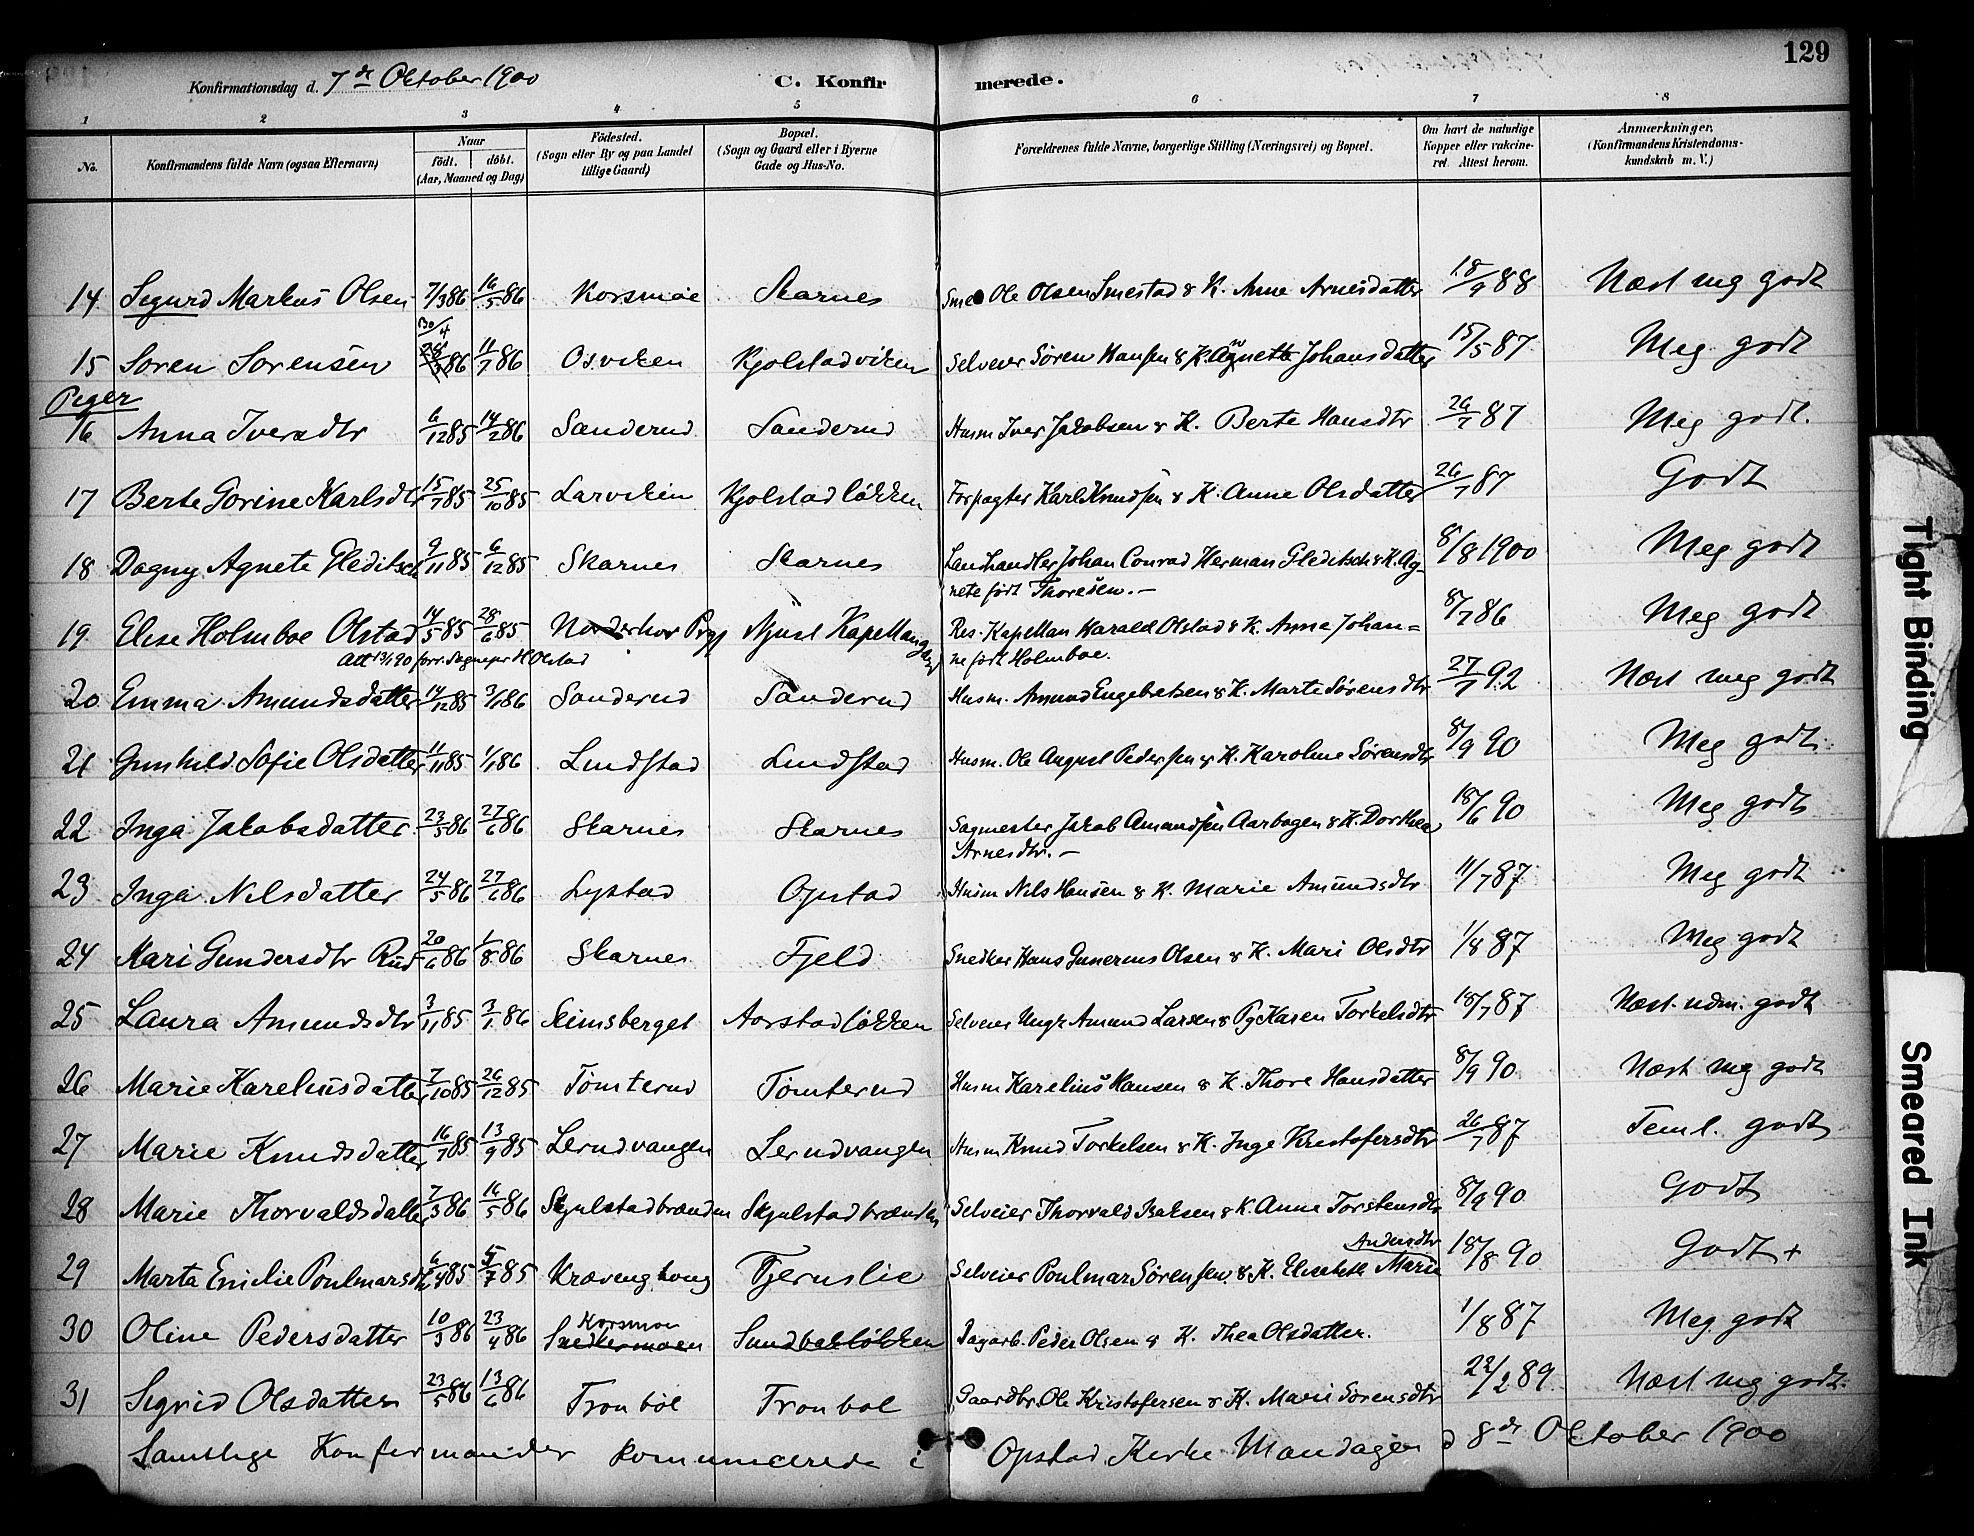 129
Konfirmationsdag d. 7de Oktober 1900 C. Konfirmerede.
1 2 3 4 5 6 7 8
No. Konfirmandens fulde Navn (ogsaa Efternavn) Naar födt. döbt. (Aar, Maaned og Dag) Födested. (Sogn eller By og paa Landet tillige Gaard) Bopæl. (Sogn og Gaard eller i Byerne Gade og Hus-No. Forældrenes fulde Navne, borgerlige Stilling (Næringsvei) og Bopæl. Om havt de naturlige Kopper eller vakcineret. Attest herom. Anmærkninger. (Konfirmandens Kristendomskundskab m. V.)
14 Sigurd Markus Olsen 7/3 86 16/5 86 Korsmoe Skarnes Smed Ole Olsen Smestad & K. Anne Arnesdatter 18/9 88 Næst meg godt
30/4
15 Soren Sorensen 86 11/7 86 Osviken Kjolstadviken Selveier Søren Hansen & K. Agnette Johansdatter 15/5 87 Meg godt
Piger
16 Anna Iversdtr 6/12 85 14/2 86 Sanderud Sanderud Husm Iver Jakobsen & K. Berte Hansdtr 26/7 87 Meg godt.
17 Berte Gorine Karlsdtr 15/7 85 25/10 85 Larviken Kjolstadløkken Forpagter Karl Knudsen & K. Anne Olsdatter 26/7 87 Godt
18 Dagny Agnete Gleditsch 9/11 85 6/12 85 Skarnes Skarnes Landhandler Johan Conrad Herman Gleditsch & K. Ag-
nete født Thoresen. —
8/8 1900 Meg godt
19 Elise Holmboe Olstad 14/5 85 28/6 85 Norderhov Prgj Njust Kapellangård Res. Kapellan Harald Olstad & K. Anna Johan=
ne født Holmboe.
8/7 86 Meg godt
Att 13/1 90 forr. Sognepr H Olstad
20 Emma Amundsdatter 14/12 85 3/1 86 Sanderud Sanderud Husm. Amund Engebretsen & K. Marte Sørensdtr 27/7 92 Næst meg godt
21 Gunhild Sofie Olsdatter 11/11 85 1/1 86 Lundstad Lundstad Husm. Ole August Pedersen & K. Karoline Sørensdtr 8/9 90 Meg godt
22 Inga Jakobsdatter 23/5 86 27/6 86 Skarnes Skarnes Sagmester Jakob Amundsen Aarbogen & K. Dorthea
Arnesdtr. —
18/6 90 Meg godt
23 Inga Nilsdatter 24/5 86 27/6 86 Lystad Opstad Husm Nils Hansen & K. Marie Amundsdtr 11/7 87 Meg godt
24 Kari Gundersdtr Rud 20/6 86 1/8 86 Skarnes Fjeld Snedker Hans Gunerius Olsen & K. Mari Olsdtr 1/8 87 Meg godt
25 Laura Amundsdtr 3/11 85 3/1 86 Seimsberget Aarstadløkken Selveier Ungk Amund Larsen & Pg Karen Torkelsdtr 18/7 87 Næst. udm. godt
26 Marie Kareliusdatter 7/10 85 26/12 85 Tomterud Tomterud Husm Karelius Hansen & K. Thore Hansdatter 8/9 90 Næst meg godt
27 Marie Knudsdatter 16/7 85 13/9 85 Lerudvangen Lerudvangen Husm Knud Torkelsen & K. Inge Kristofersdtr 26/7 87 Teml. godt
28 Marie Thorvaldsdatter 7/3 86 16/5 86 Skjulstadbrænden Skjulstadbrænden Selveier Thorvald Isaksen & K. Anne Torstensdtr 8/9 90 Godt
29 Marta Emilie Poulmarsdtr 6/4 85 5/7 85 Krævenghoug Tjernslie Selveier Poulmar Sørensen & K. Elisabeth Marie Andersdtr 18/8 90 Godt +
30 Oline Pedersdatter 10/3 86 23/4 86 Korsmoe Snedkermoen Sundbakløkken Dagarb. Peder Olsen & K. Thea Olsdatter. 1/8 87 Meg godt
31 Sigrid Olsdatter 23/5 86 13/6 86 Tronbøl Tronbøl Gaardbr. Ole Kristofersen & K. Marie Sorensdtr 22/2 89 Næst meg godt.
Samtlige Konfirmander kommunicerede i Opstad Kirke Mandagen d 8de Oktober 1900
Tight Binding
Smeared Ink